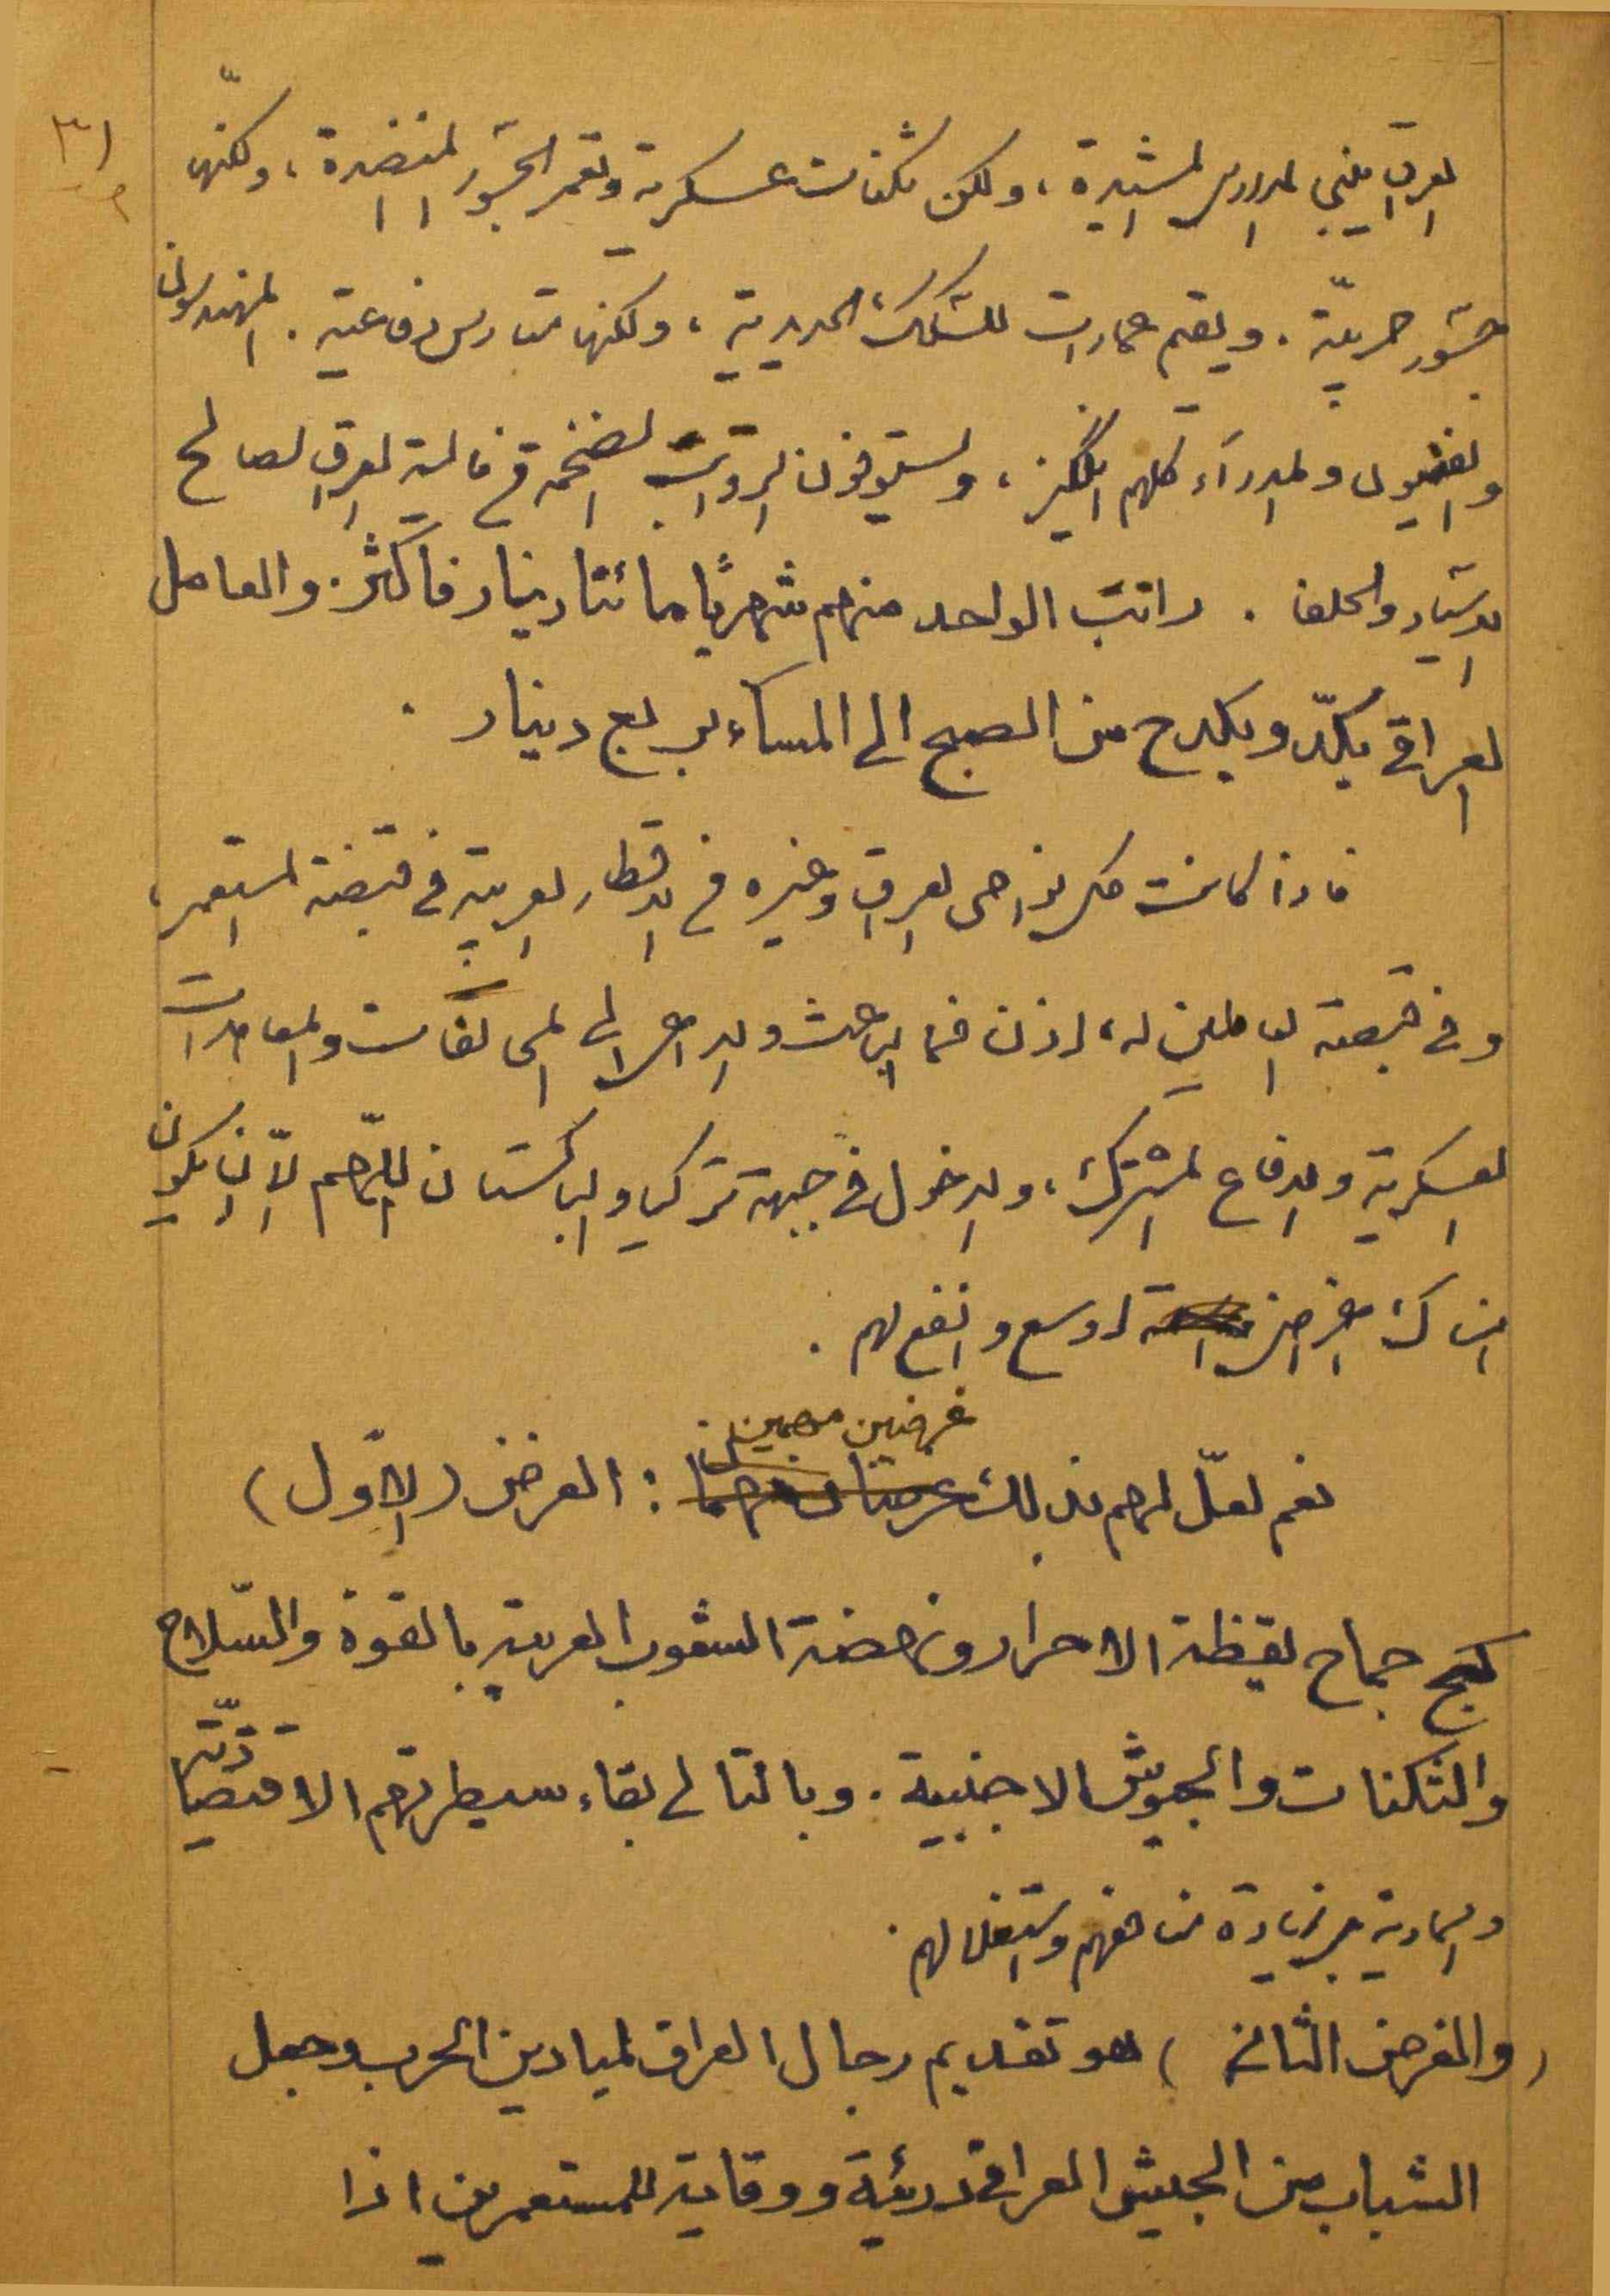 ٣١
العراق يبني المدارس المشيدة، ولكن ثكنات عسكرية وتعمر الجسور المنضدة، ولكنّها
جسور حربيّة. ويقيم عمارات للسكك الحديدية، ولكنها متارس دفاعية. المهندسون
والفنيون والمدراء كلهم انگليز، ويستوفون الرواتب الضخمة من مالية العراق لصالح
الاستعمار والحلفاء. راتب الواحد منهم شهريًا مائتا دينار فاكثر. والعامل
العراقي يكدّ ويكدح من الصبح الى المساء بربع دينار.
فاذا كانت كل نواحي العراق وغيره من الاقطار العربية في قبضة المستعمر،
وفي قبضة العاملين له، اذن فما الباعث والداعي الى المحالفات والمعاهدات
العسكرية والدفاع المشترك، والدخول في جبهة تركيا والباكستان اللّهم الّا ان يكون
هناك اغراض اوسع وانفع لهم.
نعم لعلّ لهم بذلك غرضين مهمين: الغرض (الاوّل)
كبح جماح يقظة الاحرار ونهضة الشعوب العربية بالقوة والسّلاح
والثكنات والجيوش الاجنبية. وبالتالي بقاء سيطرتهم الاقتصاديّة
والمادية وزيادة منافعهم واستغلالهم.
(والغرض الثاني) هو تقديم رجال العراق لميادين الحرب وجعل
الشباب من الجيش العراقي دريئة ووقاية للمستعمرين اذا